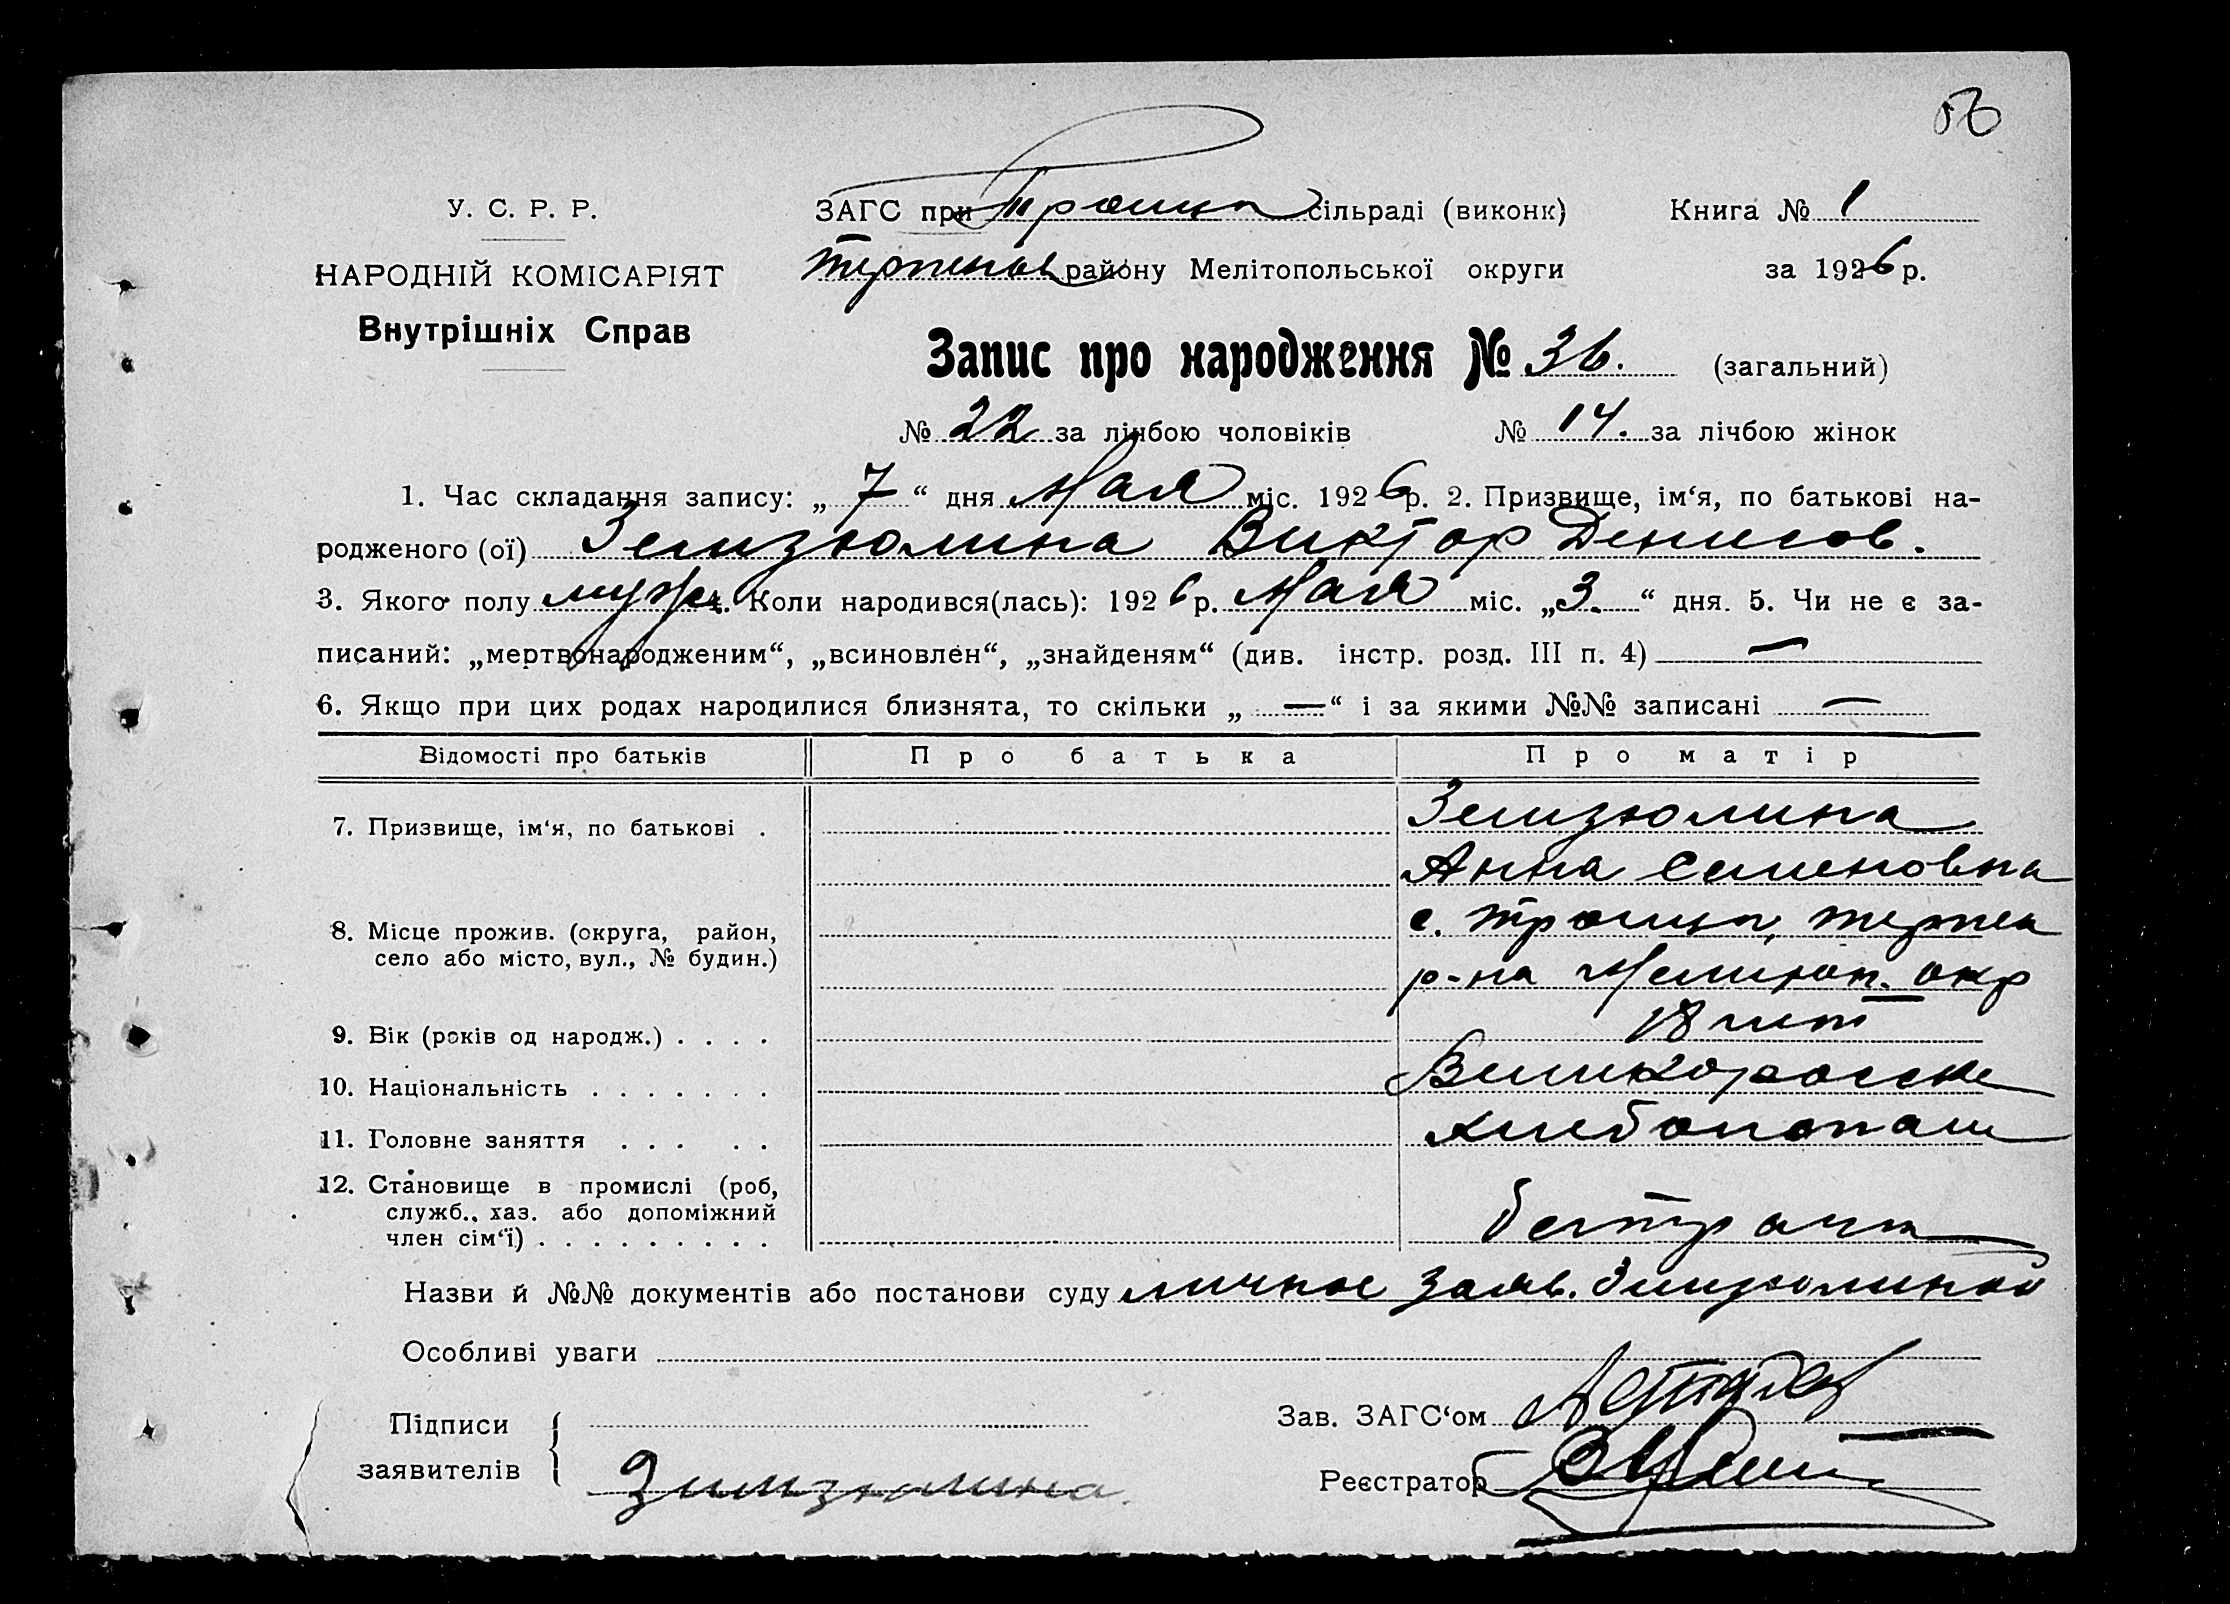 У. С. Р. Р.
НАРОДНІЙ КОМІСАРІЯТ
Внутрішніх Справ
ЗАГС при Троицк сільраді (виконк)
Терпенов району Мелітопольської округи
Книга № 1
за 1926 р.
Запис про народження № 36. (загальний)
№ 22 за лічбою чоловіків № 14. за лічбою жінок
1. Час складання запису: „ 7 “ дня Мая міс. 1926 р. 2. Призвище, ім‘я, по батькові на-
родженого (ої) Земзюлина Виктор Денисов.
3. Якого полу муж 4. Коли народився(лась): 1926 р. Мая міс. „3.“ дня. 5. Чи не є за-
писаний: „мертвонародженим“, „всиновлен“, „знайденям“ (див. інстр. розд. III п. 4) —
6. Якщо при цих родах народилися близнята, то скільки „ — “ і за якими №№ записані —
Відомості про батьків Про батька Про матір
7. Призвище, ім‘я, по батькові . Земзюлина
Анна Семеновна
8. Місце прожив. (округа, район,
село або місто, вул., № будин.)
с. Троицк,
р-на Мелитоп. окр
9. Вік (років од народж.) . . . . 18 лет
10. Національність . . . . . . . Великоросске
11. Головне заняття . . . . . хлебопаш
12. Становище в промислі (роб,
служб., хаз. або допоміжний
член сім‘ї) . . . . . . . . .
Назви й №№ документів або постанови суду личное заяв. Зимзюлиной
Особливі уваги
Підписи
заявителів
Зимзюлина
Зав. ЗАГС‘ом
Реєстратор